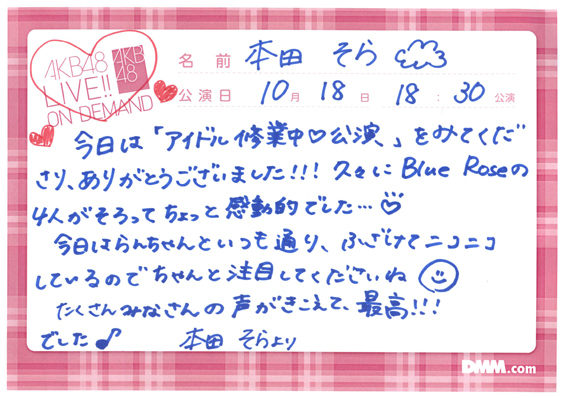 AKB48
LIVE!!
ON DEMAND
AKB
48
名前 本田 そら
公演日 10月 18日 18:30公演
今日は「アイドル修業中♡公演」をみてくだ
さり、ありがとうございました!!! 久々に Blue Roseの
4人がそろってちょっと感動的でした…♡
今日はらんちゃんといつも通り、ふざけてニコニコ
しているのでちゃんと注目してくださいね
たくさんみなさんの声がきこえて、最高!!!
でした♪ 本田 そらより
DMM.com